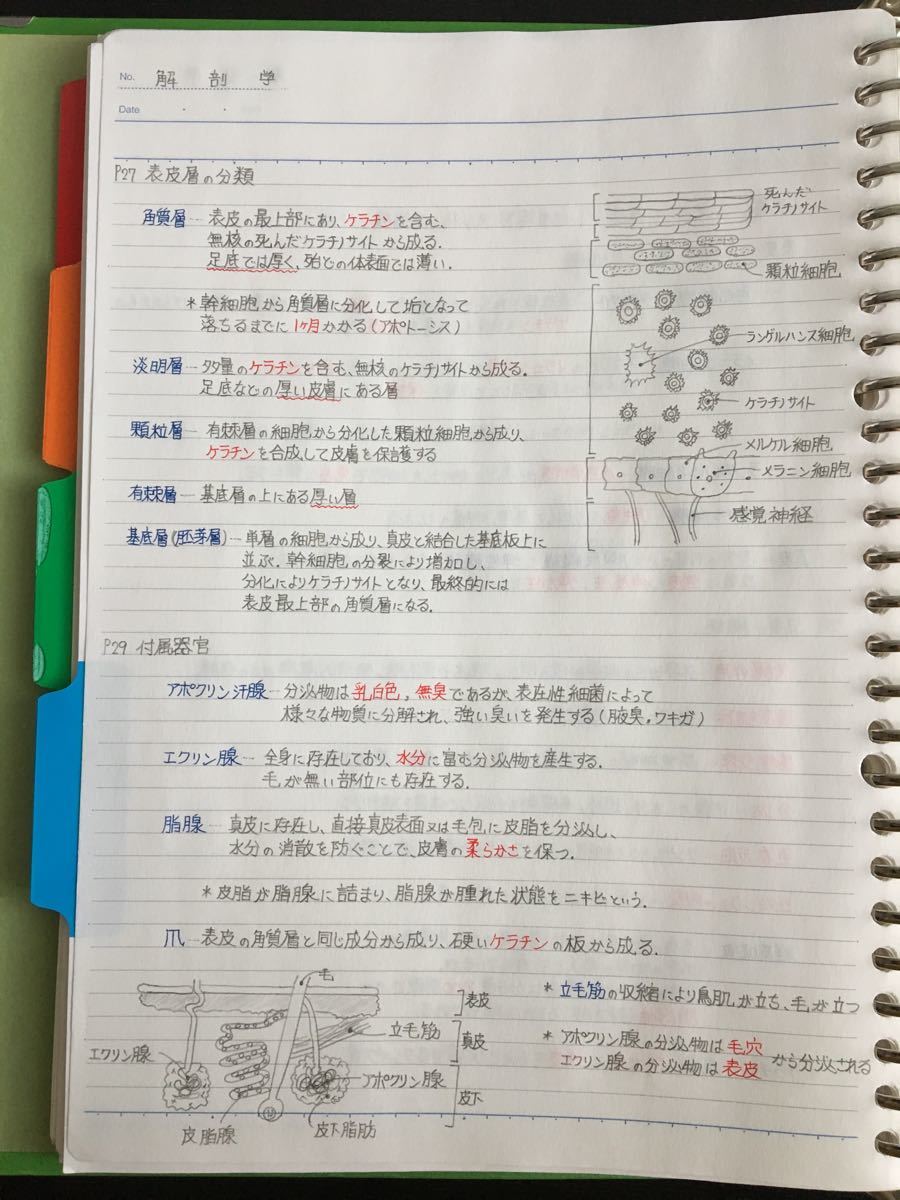 No. 解剖学
Date
P27 表皮層の分類
角質層 - 表皮の最上部にあり、ケラチンを含む、
無核の死んだケラチノサイトから成る.
足底では厚く、殆どの体表面では薄い.
*幹細胞から角質層に分化して垢となって
落ちるまでに1ヶ月かかる(アポトーシス)
淡明層 - 多量のケラチンを含む、無核のケラチノサイトから成る.
足底などの厚い皮膚にある層
顆粒層 - 有棘層の細胞から分化した顆粒細胞から成り、
ケラチンを合成して皮膚を保護する
有棘層 - 基底層の上にある厚い層
基底層(胚芽層) - 単層の細胞から成り、真皮と結合した基底板上に
並ぶ. 幹細胞の分裂により増加し、
分化によりケラチノサイトとなり、最終的には
表皮最上部の角質層になる.
死んだ
ケラチノサイト
顆粒細胞
ランゲルハンス細胞
ケラチノサイト
メルケル細胞
メラニン細胞
感覚神経
P29 付属器官
アポクリン汗腺 - 分泌物は乳白色, 無臭であるが、表在性細菌によって
様々な物質に分解され、強い臭いを発生する(腋臭,ワキガ)
エクリン腺 - 全身に存在しており、水分に富む分泌物を産生する.
毛が無い部位にも存在する.
脂腺 - 真皮に存在し、直接真皮表面又は毛包に皮脂を分泌し、
水分の消散を防ぐことで、皮膚の柔らかさを保つ.
*皮脂が脂腺に詰まり、脂腺が腫れた状態をニキビという.
爪 - 表皮の角質層と同じ成分から成り、硬いケラチンの板から成る.
毛
立毛筋
エクリン腺
アポクリン腺
皮脂腺
皮下脂肪
表皮
真皮
皮下
*立毛筋の収縮により鳥肌が立ち、毛が立つ
*アポクリン腺の分泌物は毛穴
エクリン腺の分泌物は表皮 から分泌される